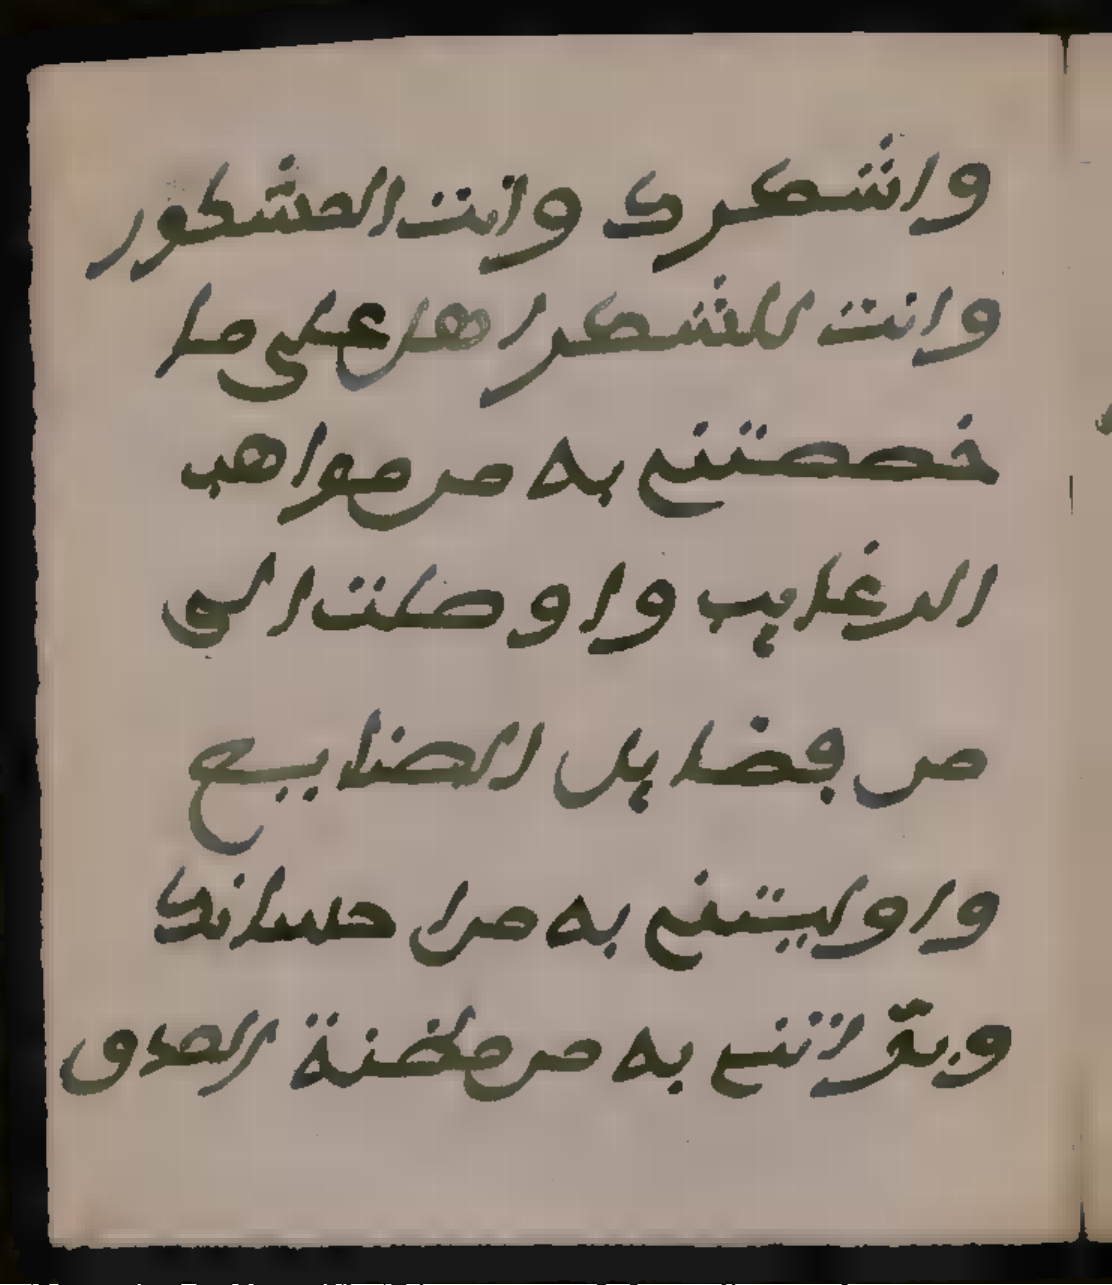 واشكرك وانت المشكور
وانت للشكر اهل على ما
خصصتني به من مواهب
الرغايب واوصلت الي
من فضايل الصنايع
واوليتني به من احسانك
وبوّاتني به من مظنة الصدق